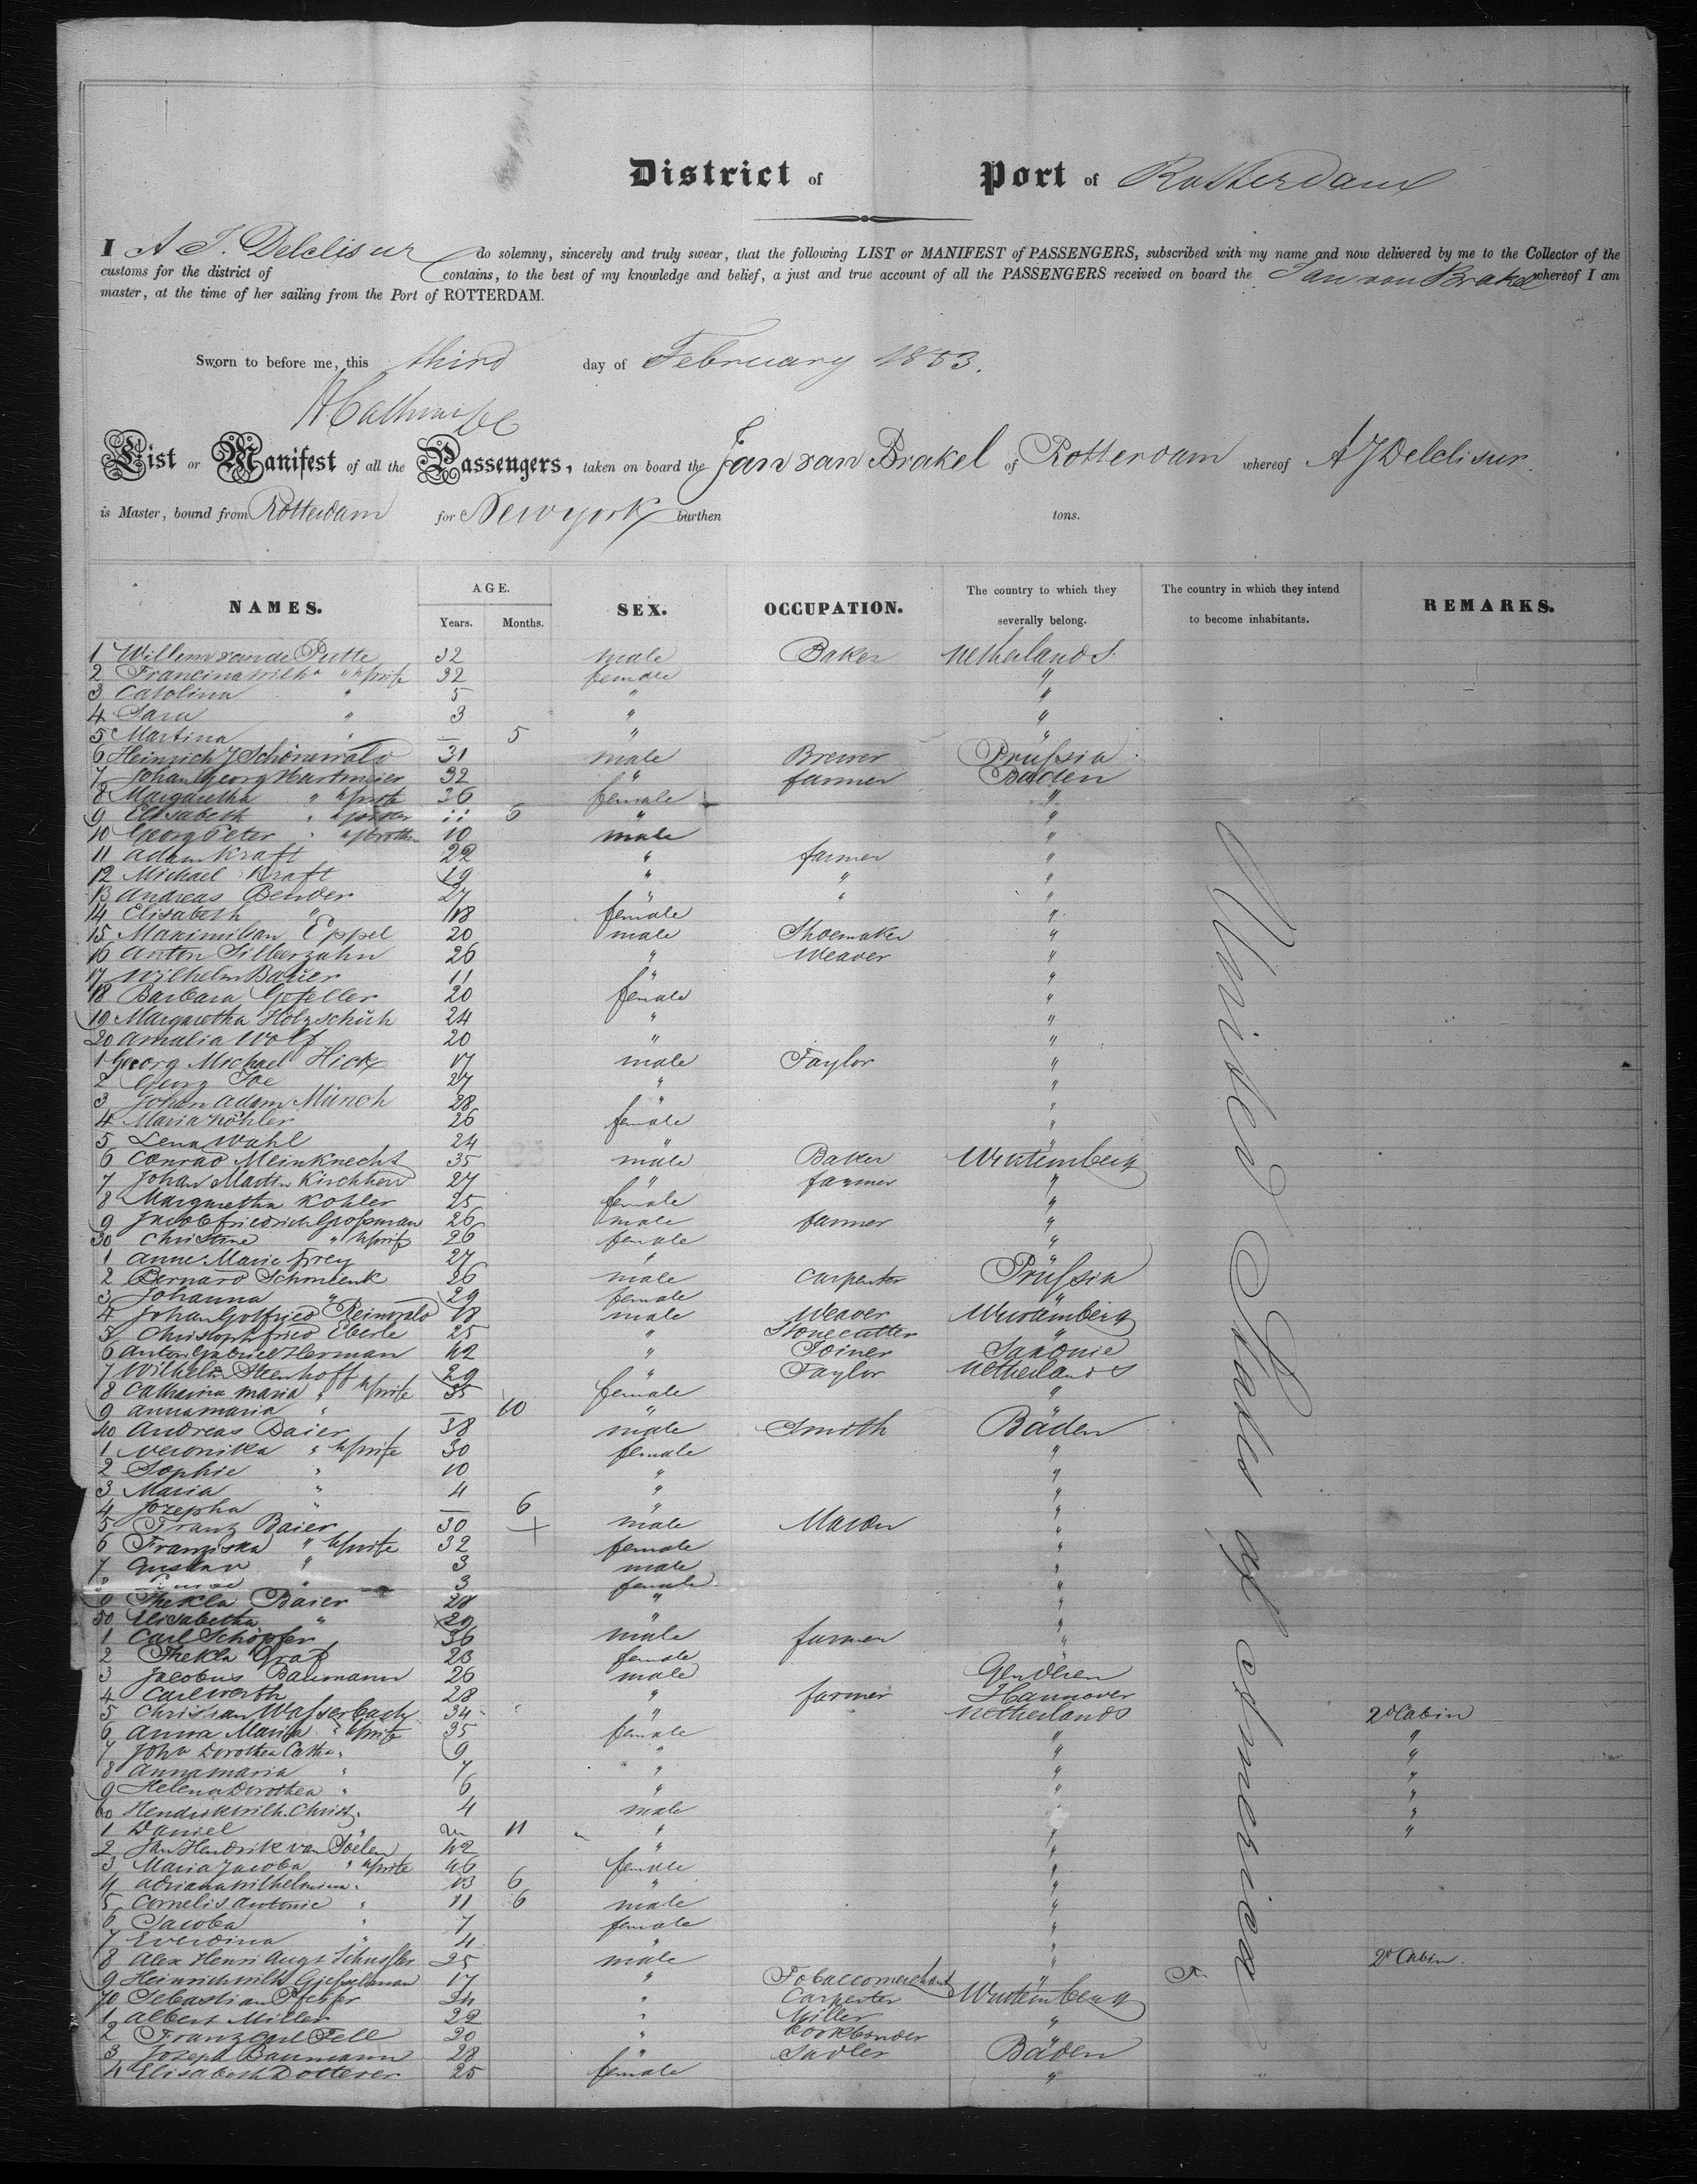 District of Port of Rotterdam
I A J. Delclisur do solemny, sincerely and truly swear, that the following LIST or MANIFEST of PASSENGERS, subscribed with my name and now delivered by me to the Collector of the
customs for the district of contains, to the best of my knowledge and belief, a just and true account of all the PASSENGERS received on board the Jan van Brakel whereof I am
master, at the time of her sailing from the Port of ROTTERDAM.
Sworn to before me, this third day of February 1853.
List or Manifest of all the Passengers, taken on board the Jan van Brakel of Rotterdam whereof A J Delclisur.
is Master, bound from Rotterdam for New york burthen tons.
NAMES. AGE. Years. Months. SEX. OCCUPATION. The country to which they severally belong. The country in which they intend to become inhabitants. REMARKS.
United States of America
1 Willem van de Putte 32 male Baker Netherlands
2 Francina Wilha " wife 32 female "
3 Carolina " 5 " "
4 Sara " 3 " "
5 Martina " — 5 " "
6 Heinrich J Schönewald 31 male Brewer Prußsia
7 Johan Georg Hartmeier 32 " farmer Baden
8 Margaretha " 36 female "
9 Elisabeth " 5 " "
10 Georg Peter " brother 10 male "
11 Adam Kraft 22 " farmer "
12 Michael Kraft 19 " " "
13 Andreas Bender 27 " " "
14 Elisabeth " 18 female "
15 Maximilian Eppel 20 male Shoemaker "
16 Anton Silberzahn 26 " Weaver "
17 Wilhelm Bauer 11 " "
18 Barbara Gfeller 20 female "
19 Margaretha Holzschuh 24 " "
20 Amalia Wolf 20 " "
1 Georg Michael Hick 17 male Taylor "
2 Georg 27 " "
3 Johan Adam Münch 28 " "
4 Maria Köhler 26 female "
5 Lena Wahl 24 " "
6 Conrad Meinknecht 35 male Baker Wurtemberg
7 Johan Martin Kirchherr 27 " farmer "
8 Margaretha Kohler 25 female "
9 Jacob friedrich Großman 26 male farmer "
30 Christine " wife 26 female "
1 Anne Marie Frey 27 " "
2 Bernard Schonlenk 26 male Carpenter Prußsia
3 Johanna " 29 female "
4 Johan Gotfried Reinwald 18 male Weaver Wurtemberg
5 Christoph fried Eberle 25 " Stonecutter "
6 Anton Gabriel Herman 42 " Joiner Saxonie
7 Wilhelm Steenhoff 29 " Taylor Netherlands
8 Catharina Maria " wife 35 female "
9 Anna Maria " — 10 " "
40 Andreas Baier 38 male Smith Baden
1 Veronika " wife 30 female "
2 Sophie " 10 " "
3 Maria " 4 " "
4 Jozepha " — 6 " "
5 Franz Baier 30 + male Mason "
6 Franziska " wife 32 female "
7 Gustav " 3 male "
3 female "
9 Thekla Baier 28 " "
50 Elisabetha " 29 " "
1 Carl Schöpfer 36 male farmer "
2 Thekla Graf 23 female
3 Jacobus Baumann 26 male
4 Carl Werth 28 " farmer Hannover
5 Christian Waßerbach 34 " Netherlands 2d Cabin
6 Anna Maria " wife 35 female " "
7 Joha Dorothea Catha " 9 " " "
8 Anna Maria " 7 " " "
9 Helena Dorothea " 6 " " "
60 Hendrik Wilh. Christ " 4 male "
1 Daniel " 11 " "
2 Jan Hendrik van Soelen 42 " "
3 Maria Jacoba " wife 46 female "
4 Adriana Wilhelmina " 13 6 " "
5 Cornelis Antonie " 11 6 male "
6 Jacoba " 7 female "
7 Everdina " 4 " "
8 Alex Henri Augt 25 male " 2d Cabin.
9 Heinrich Wilh 17 " Tobaccomerchant "
70 Sebastian Pfeifer 24 " Carpenter Wurtemberg
1 Albert Miller 22 " Miller "
2 Franz Carl Fell 20 " Bookbinder
3 Jozeph Baumann 28 " Sadler Baden
4 Elisabeth Dotterer 25 female "